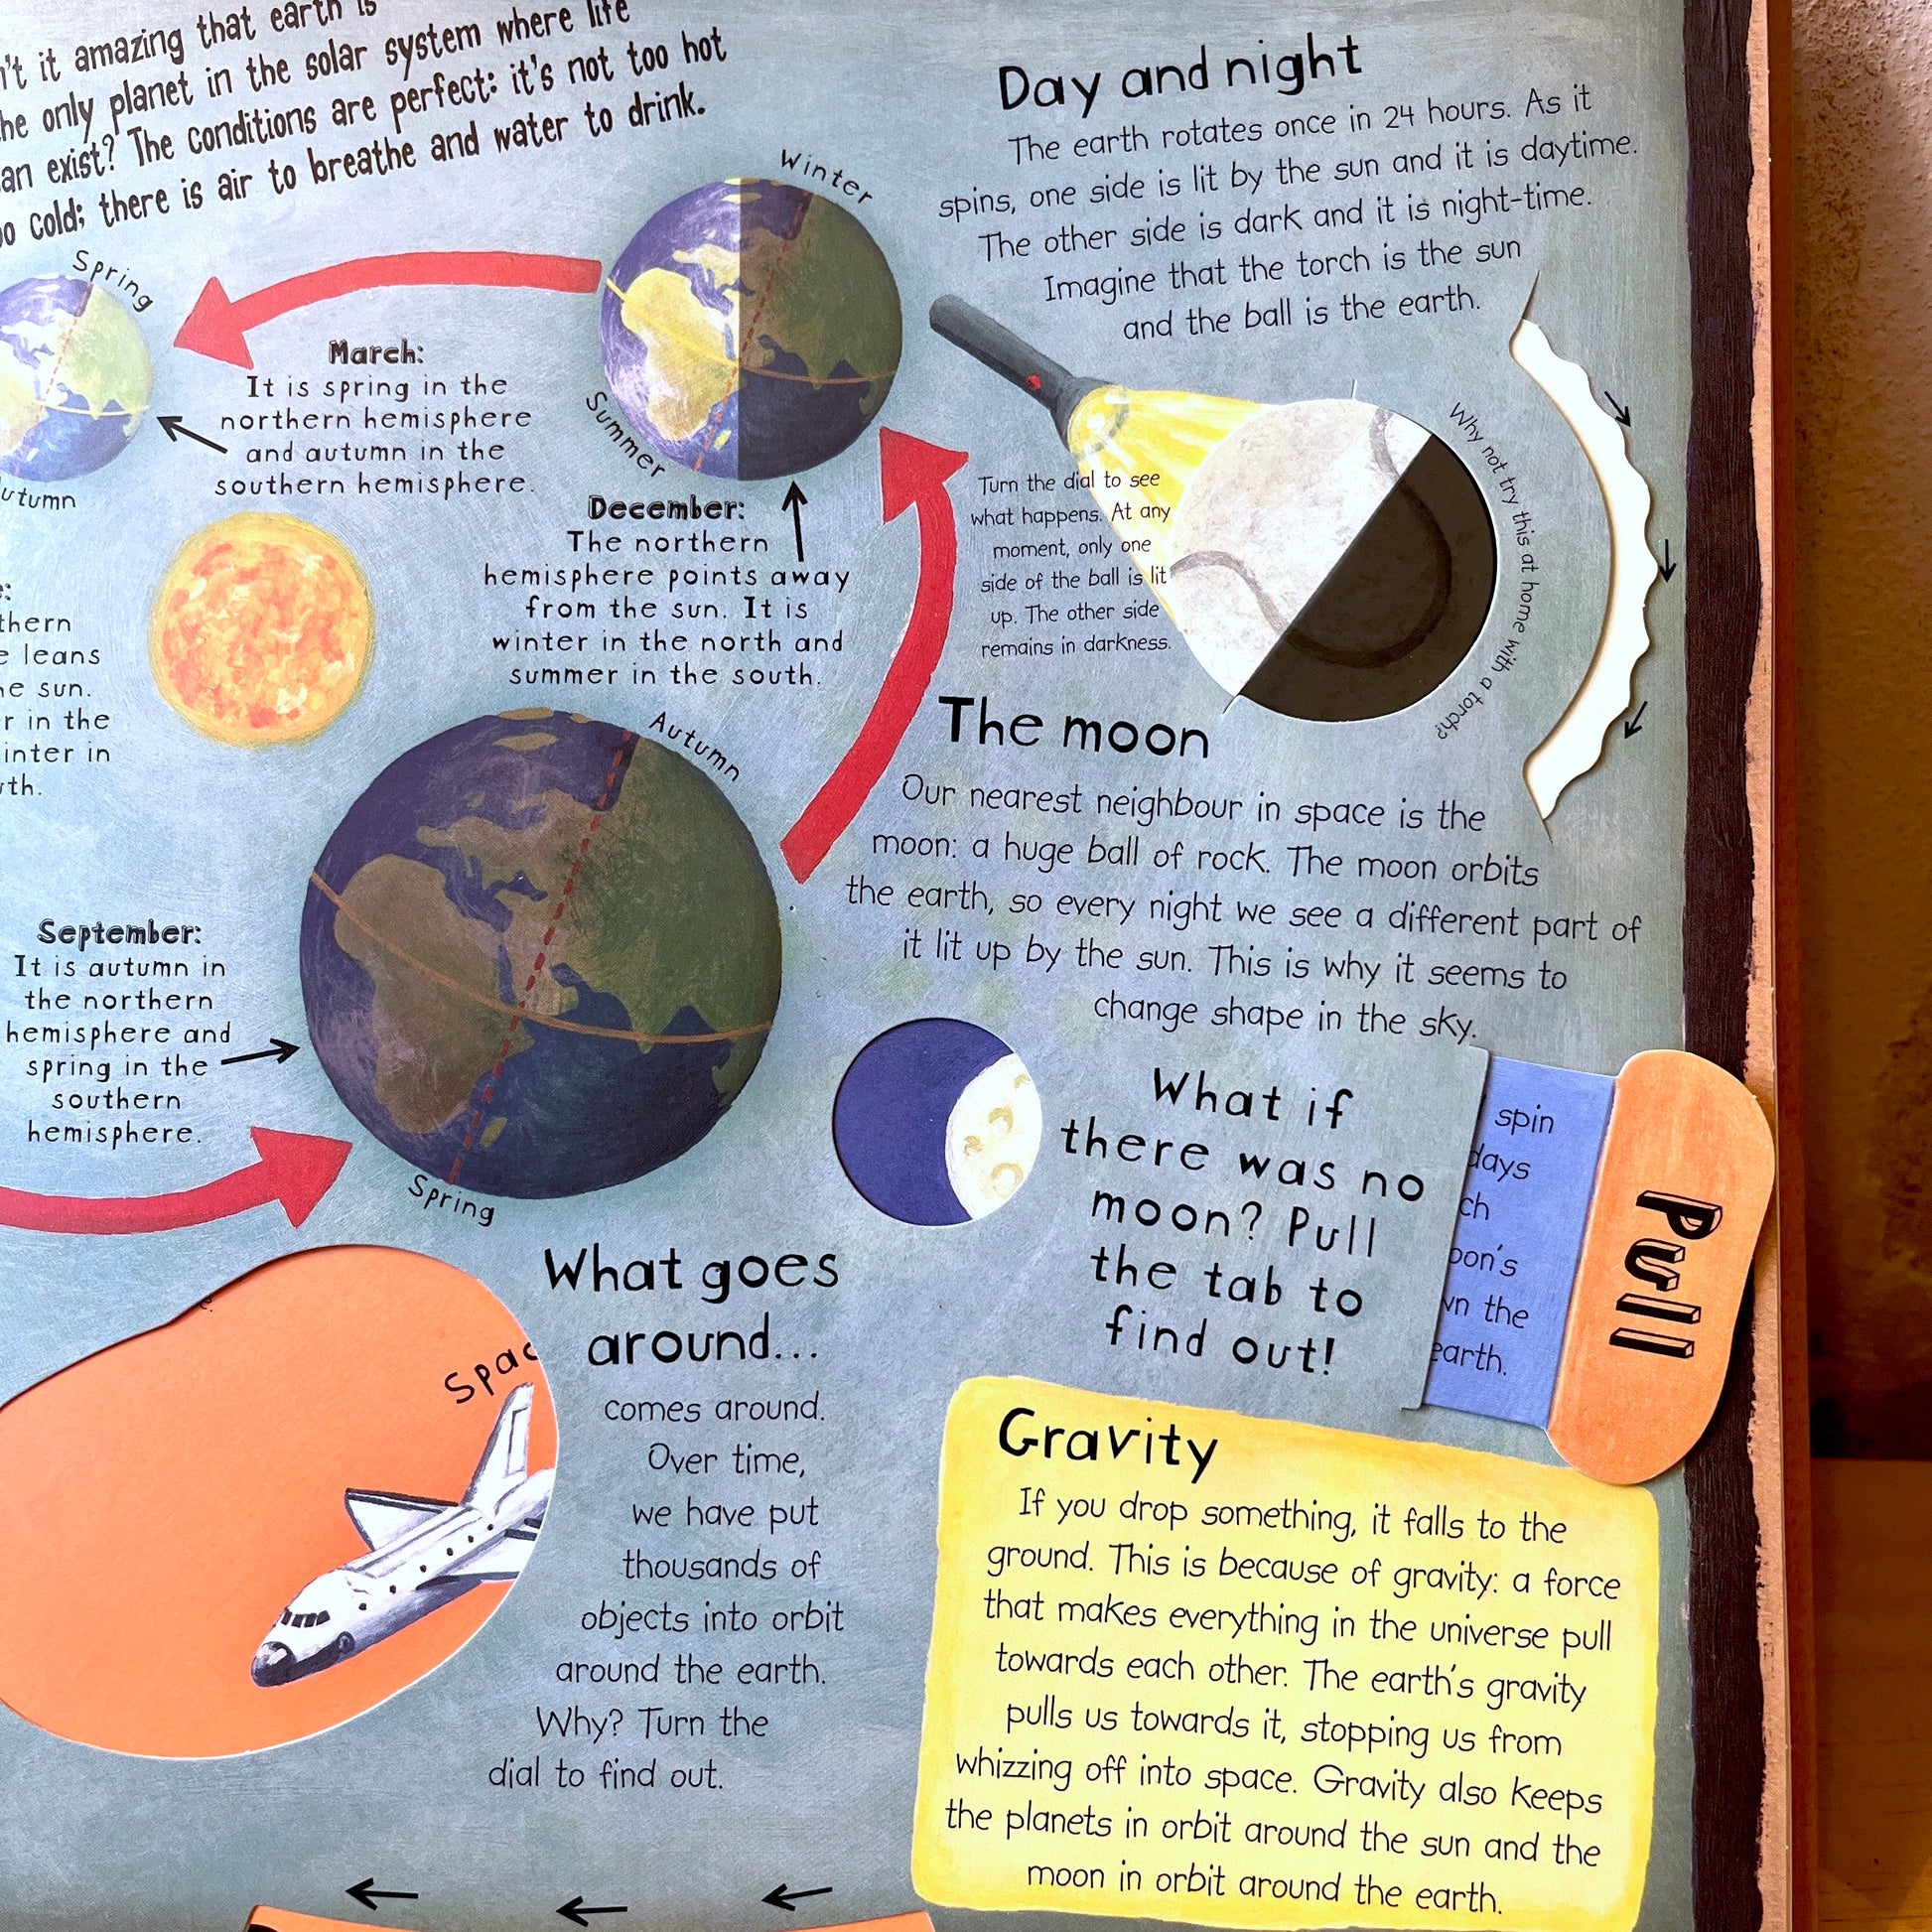 n't it amazing that earth is
he only planet in the solar system where life
an exist? The conditions are perfect: it's not too hot
oo cold; there is air to breathe and water to drink.
Spring
utumn
March:
It is spring in the
northern hemisphere
and autumn in the
southern hemisphere.
Winter
Summer
December:
The northern
hemisphere points away
from the sun. It is
winter in the north and
summer in the south.
e:
thern
e leans
he sun.
r in the
inter in
uth.
Autumn
Spring
September:
It is autumn in
the northern
hemisphere and
spring in the
southern
hemisphere.
Day and night
The earth rotates once in 24 hours. As it
spins, one side is lit by the sun and it is daytime.
The other side is dark and it is night-time.
Imagine that the torch is the sun
and the ball is the earth.
Turn the dial to see
what happens. At any
moment, only one
side of the ball is lit
up. The other side
remains in darkness.
Why not try this at home with a torch?
The moon
Our nearest neighbour in space is the
moon: a huge ball of rock. The moon orbits
the earth, so every night we see a different part of
it lit up by the sun. This is why it seems to
change shape in the sky.
What if
there was no
moon? Pull
the tab to
find out!
spin
days
ch
oon's
wn the
earth.
Pull
Spac
What goes
around...
comes around.
Over time,
we have put
thousands of
objects into orbit
around the earth.
Why? Turn the
dial to find out.
Gravity
If you drop something, it falls to the
ground. This is because of gravity: a force
that makes everything in the universe pull
towards each other. The earth's gravity
pulls us towards it, stopping us from
whizzing off into space. Gravity also keeps
the planets in orbit around the sun and the
moon in orbit around the earth.